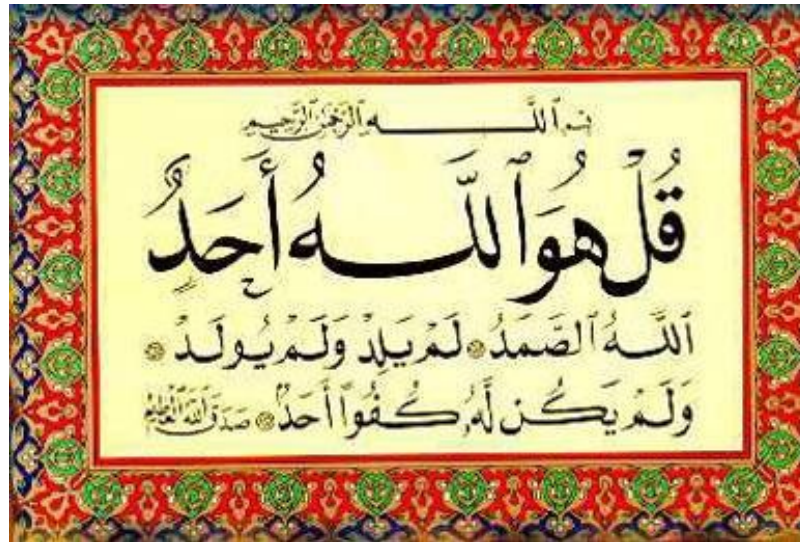 بِسْمِ ٱللَّهِ ٱلرَّحْمَٰنِ ٱلرَّحِيمِ
قُلْ هُوَ ٱللَّهُ أَحَدٌ
ٱللَّهُ ٱلصَّمَدُ ۝ لَمْ يَلِدْ وَلَمْ يُولَدْ ۝
وَلَمْ يَكُن لَّهُۥ كُفُوًا أَحَدٌ ۝ صَدَقَ اللّٰهُ الْعَظِيم